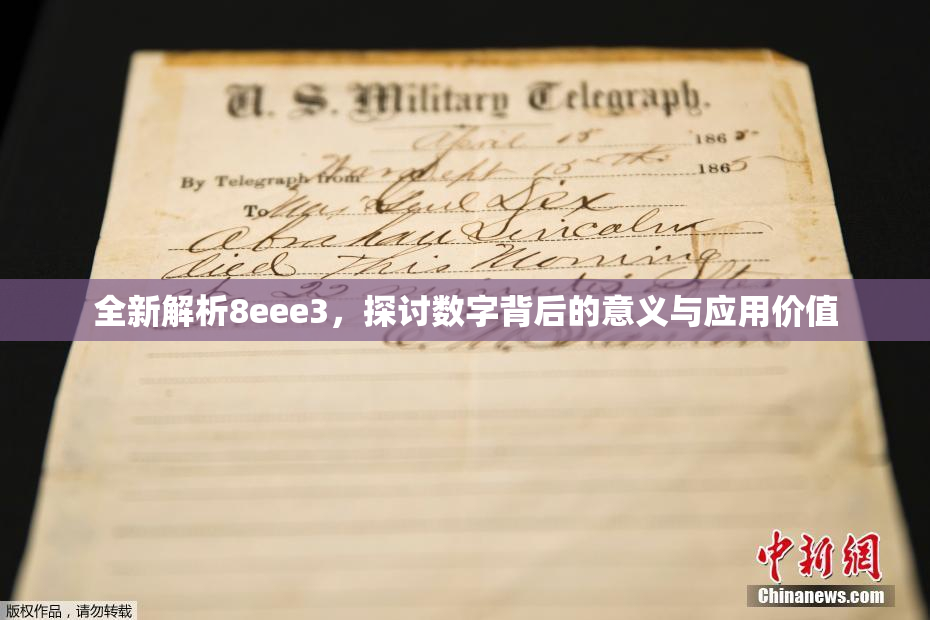 U. S. Military Telegraph.
April 15 1865
By Telegraph from War Dept 15th 1865
To Maj Genl Dix
Abraham Lincoln
died This Morning
at 22 minutes after
全新解析8eee3，探讨数字背后的意义与应用价值
中新網
Chinanews.com
版权作品，请勿转载